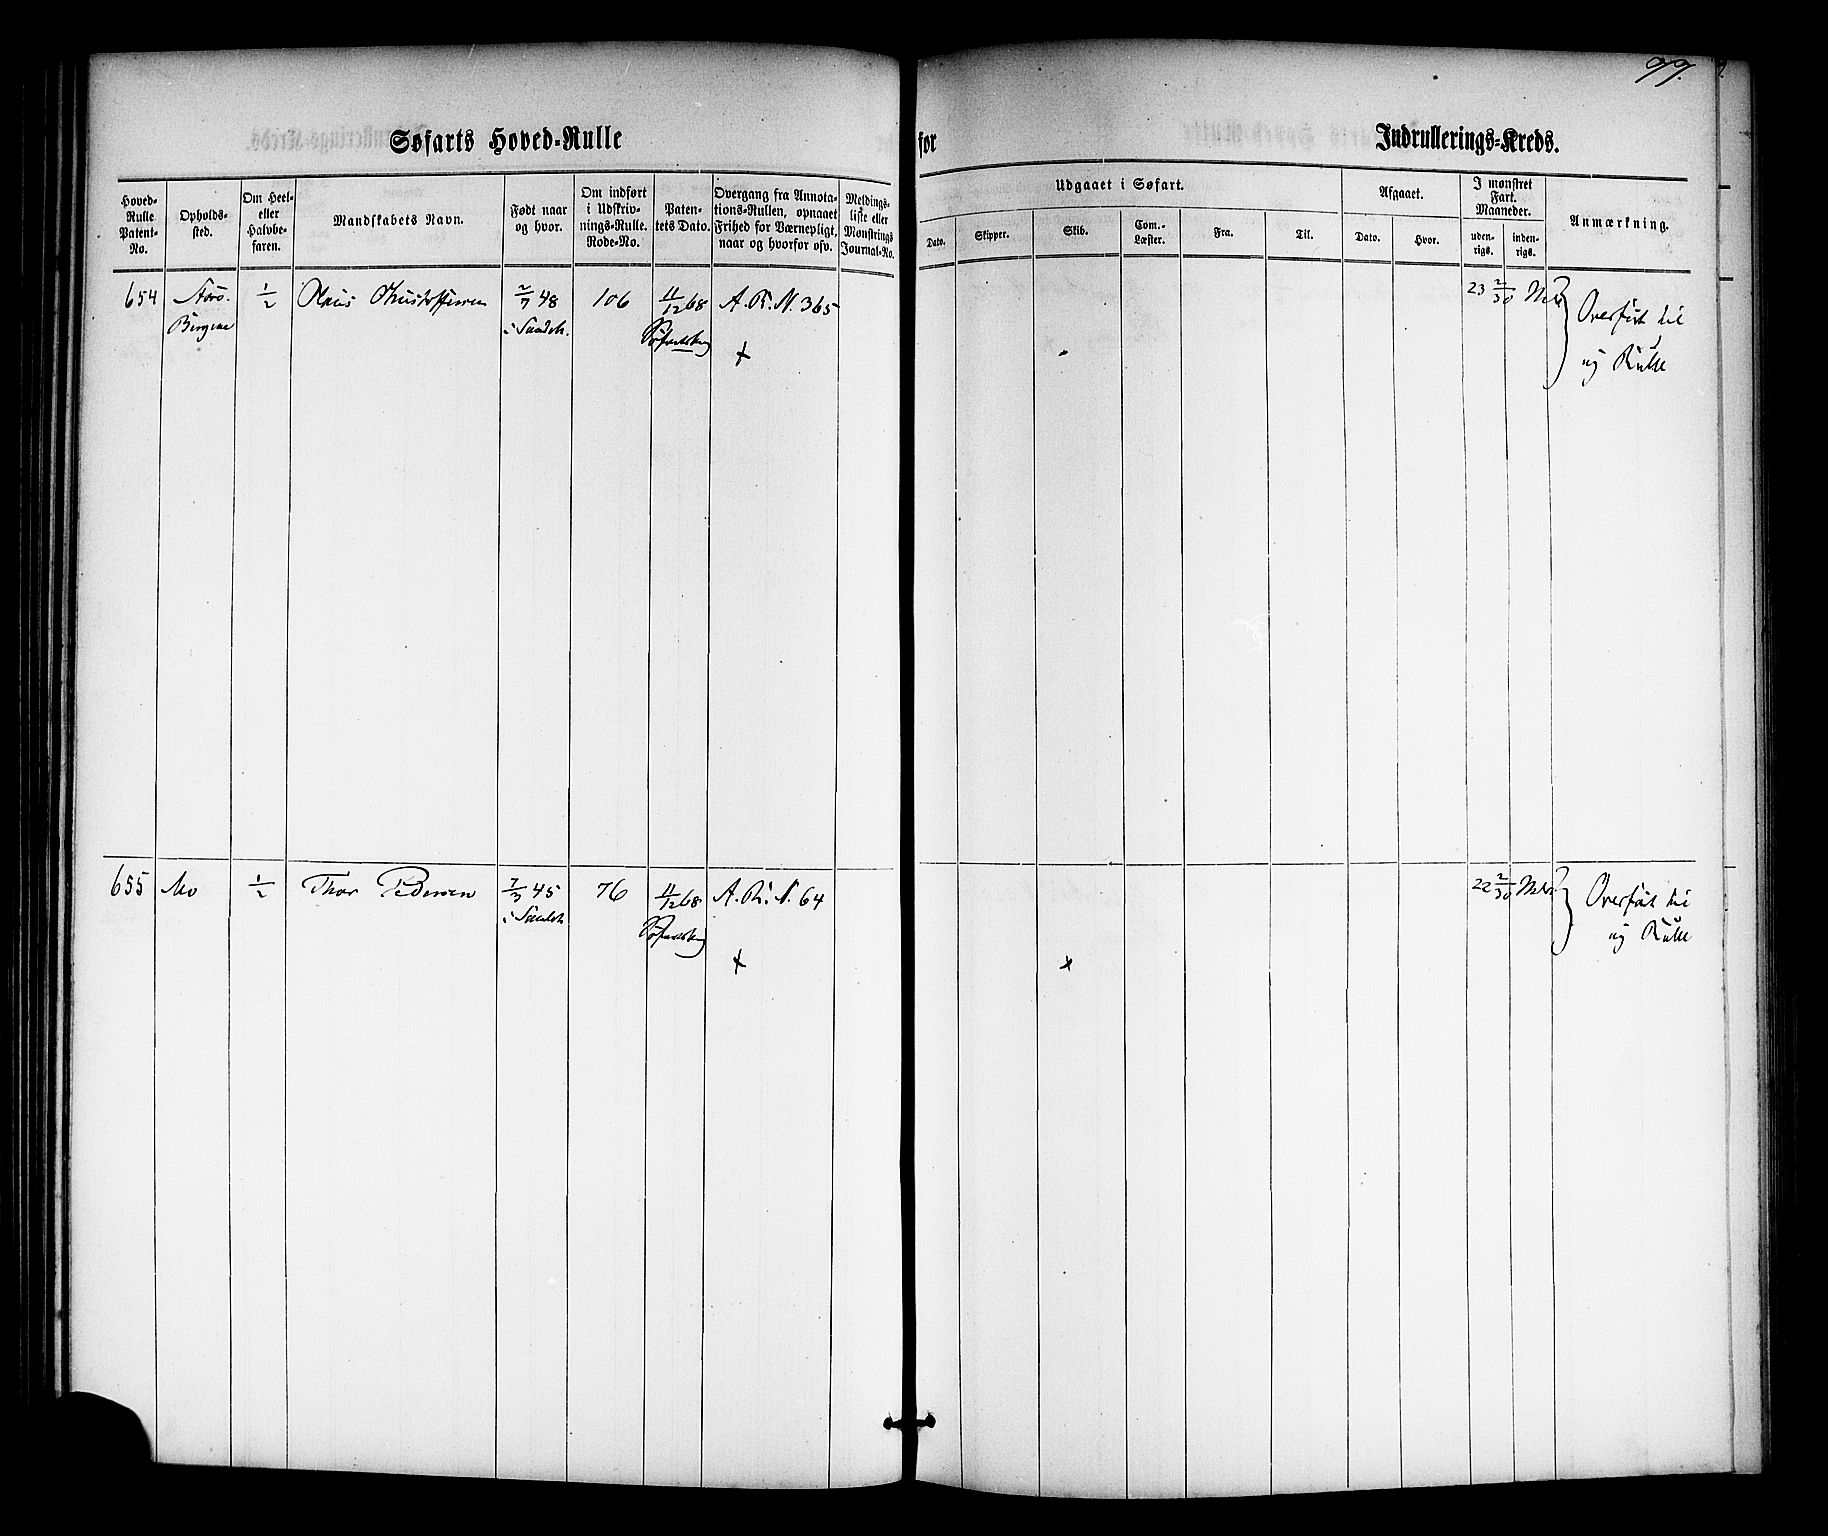 77.
Søfarts Hoved-Rulle for Indrullerings-Kreds.
Hoved-
Rulle
Patent-
No.
Opholds-
sted.
Om Heel-
eller
Halvbe-
faren.
Mandskabets Navn.
Født naar
og hvor.
Om indført
i Udskriv-
nings-Rulle.
Rode-No.
Paten-
tets Dato.
Overgang fra Annota-
tions-Rullen, opnaaet
Frihed for Værnepligt,
naar og hvorfor osv.
Meldings-
liste eller
Mønstrings
Journal-No.
Udgaaet i Søfart.
Dato.
Skipper.
Skib.
Com.-
Læster.
Fra.
Til.
Afgaaet.
Dato.
Hvor.
I mønstret
Fart.
Maaneder.
uden-
rigs.
inden-
rigs.
Anmærkning.
654
1/2
Christoffersen
2/7 48
106
11/12 68
A. R. N. 365
23 2/30
Overført til
ny Rulle
i Sandeh.
655 Mo 1/2 Thor Pedersen 7/3 45 76 11/12 68 A. R. N. 64
22 2/30
Overført til
ny Rulle
i Sandeh.